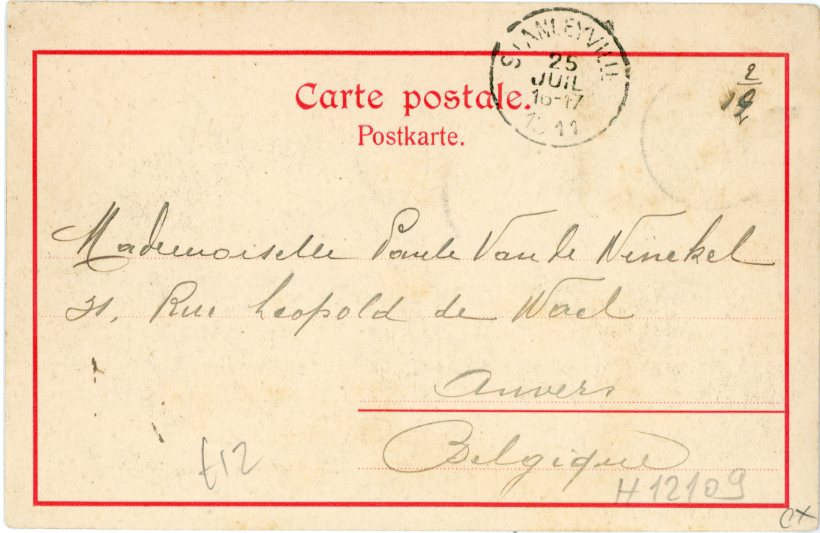 STANLEYVILLE
25
JUIL
16-17
1911
2
19
Carte postale.
Postkarte.
Mademoiselle Paule Van de Ninckel
31, Rue Leopold de Wael
Anvers
Belgique
£12
H12109
CX